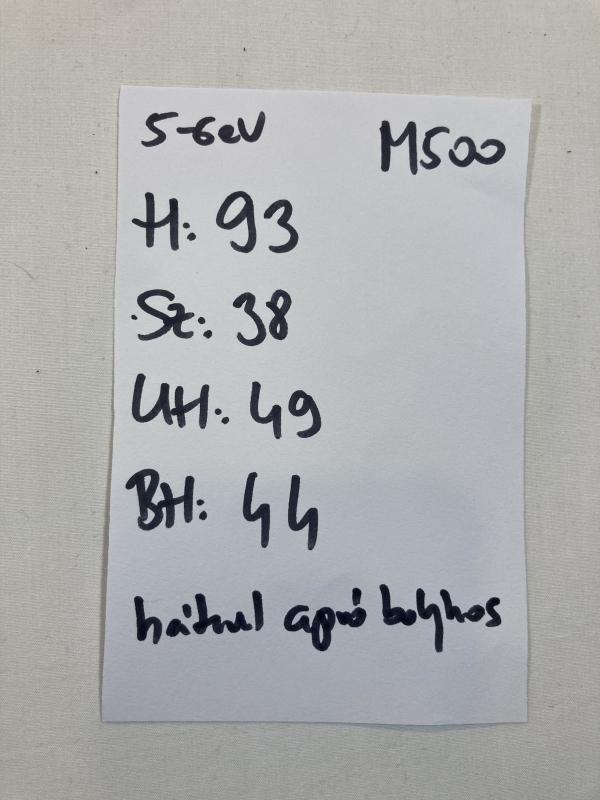 5-6év M500
H: 93
Sz: 38
UH: 49
BH: 44
hátul apró bolyhos